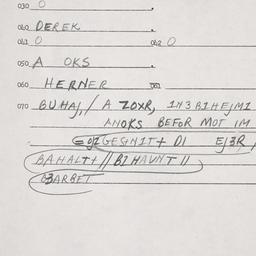 030 O
040 DEREK
041 O 042 O
050 A OKS
060 HERNER 061
070 BUHAJ, / A ZOXR, 1H3 B1HEJM1
ANOKS BEFOR MOT IM
GESHIT+ DI EJ3R,
BAHALT+ // B1 HAVNT //
BARBET